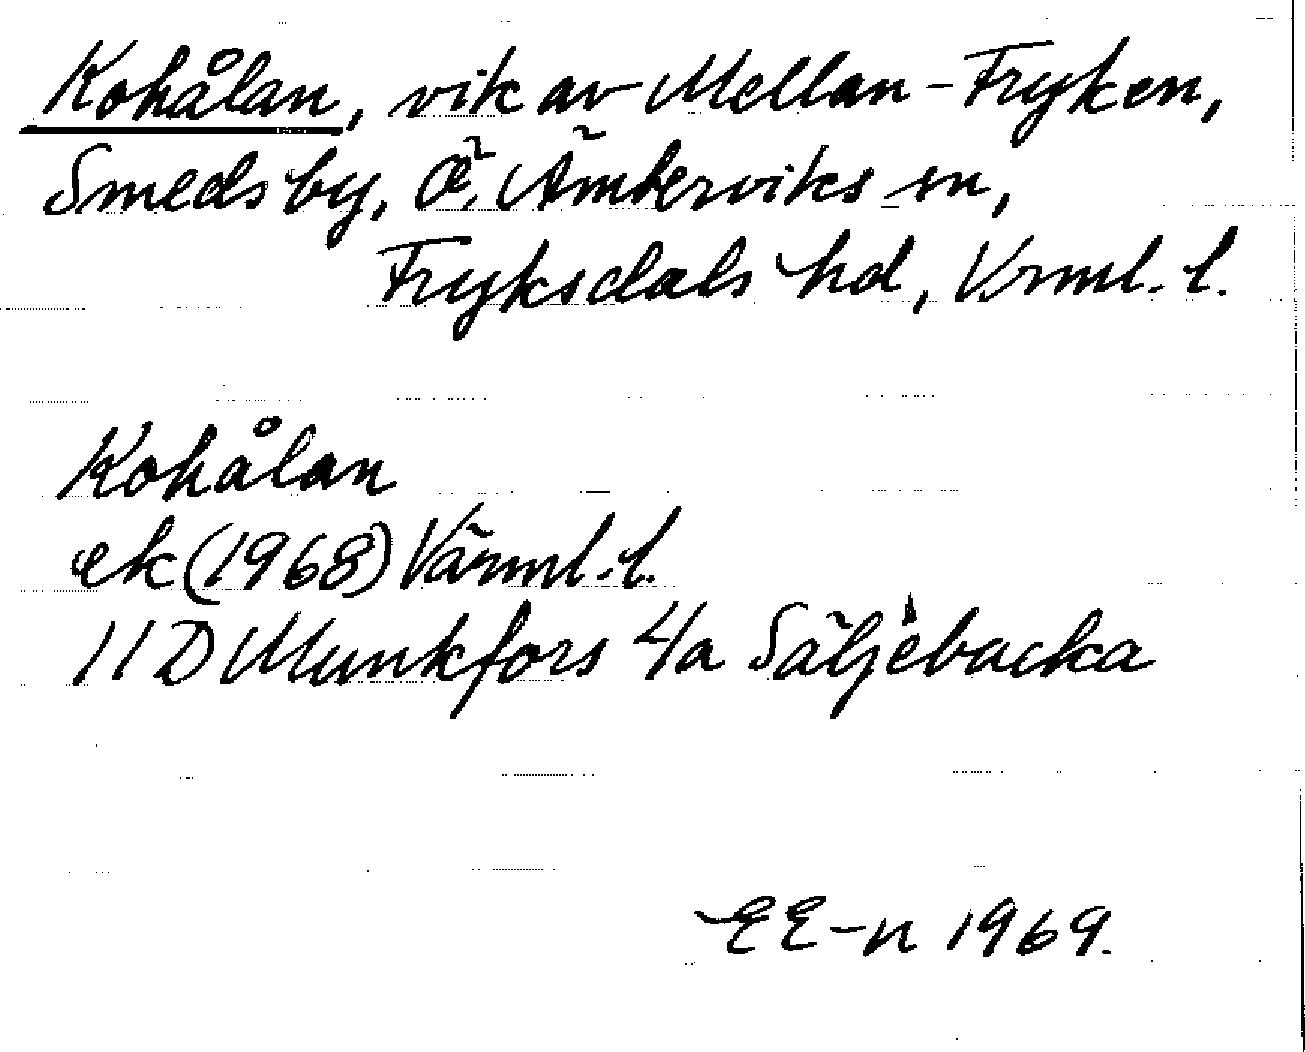 Kohålan, vik av Mellan-Fryken,
Smedsby, Ö. Ämterviks sn,
Fryksdals hd, Vrml. l.
Kohålan
ek (1968) Värml. l.
11 D Munkfors 4/a Säljebacka
EE-n 1969.